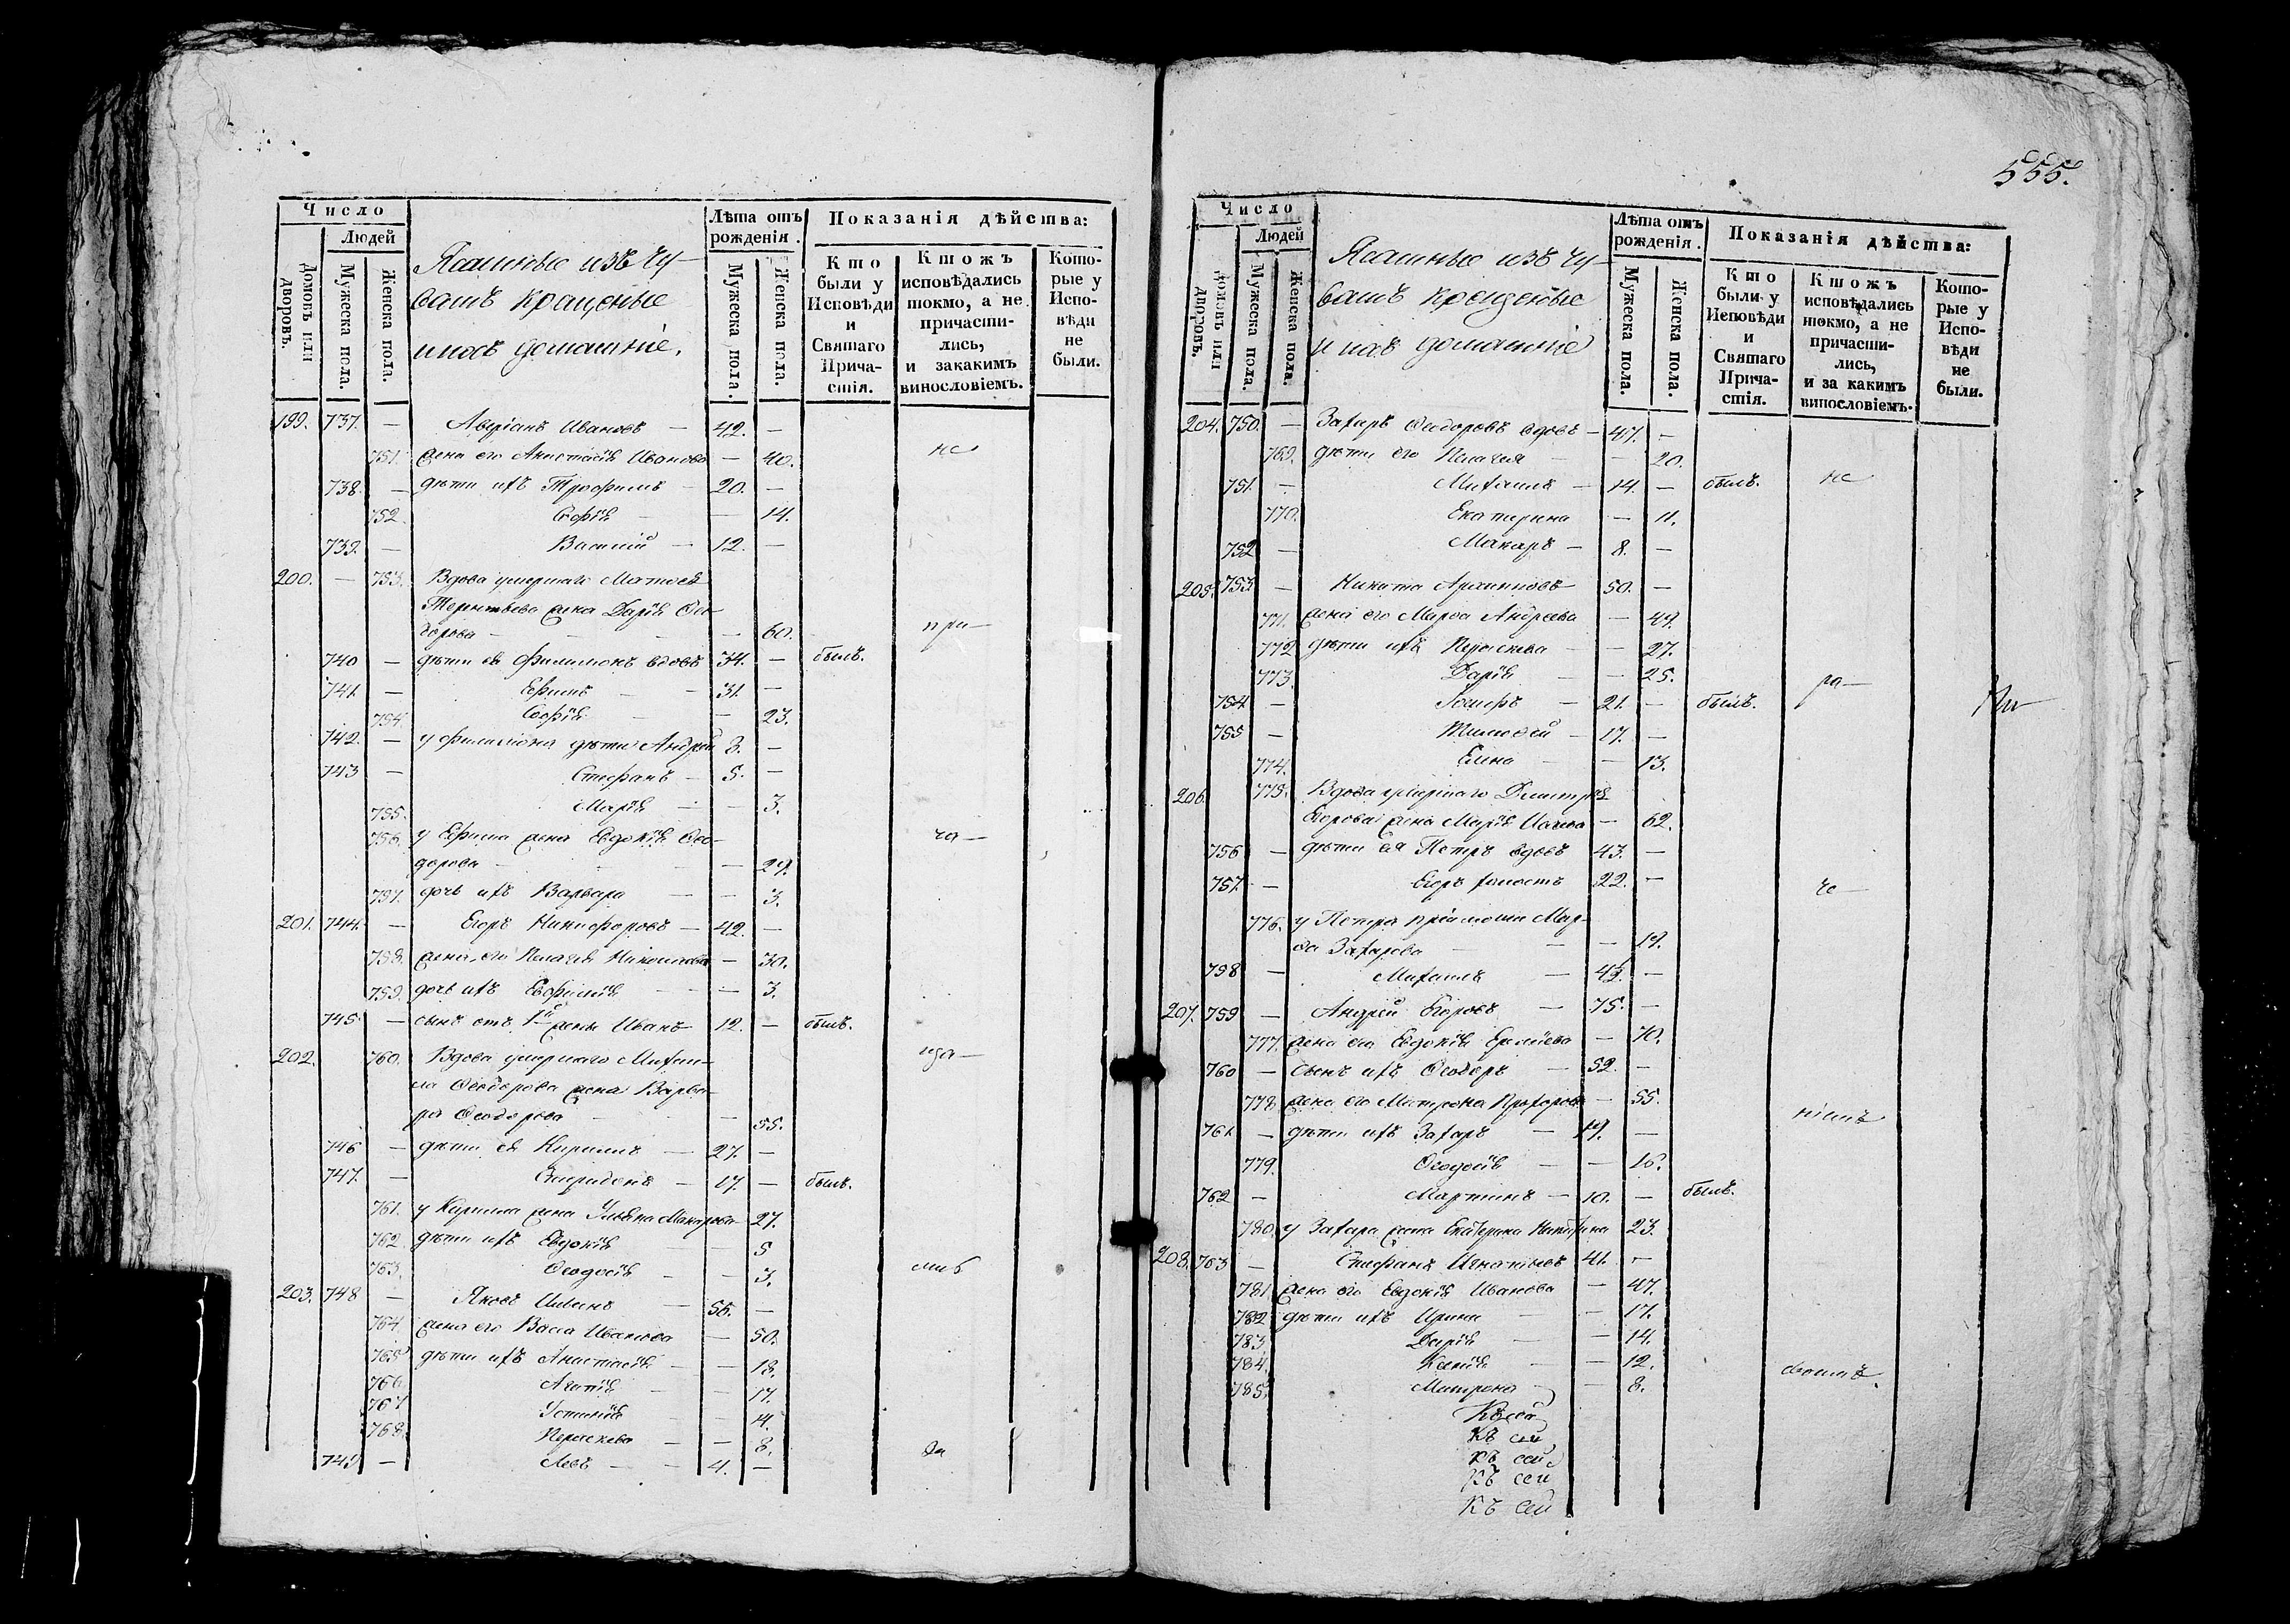 Число
Людей
домовъ или дворовъ.
Мужеска пола.
Женска пола.
Ясашные изъ чу-
вашъ крещеные
и ихъ домашніе.
Лѣта отъ рожденія.
Мужеска пола.
Женска пола.
Показанія дѣйства:
Кто были у Исповѣди и Святаго Причастія.
Ктожъ исповѣдались токмо, а не причасти-лись, и закакимъ винословіемъ.
Кото-рые у Испо-вѣди не были.
199. 737. — Аверіанъ Ивановъ — 42. —
751. жена его Анастасія Иванова — 40. не
738. — дѣти ихъ Трофимъ — 20. —
752. Софія — — 14.
739. — Василій — 12. —
200. — 753. Вдова умершаго Матвея
Терентьева жена Дарія Ѳео-
дорова — — 60. при-
740 — дѣти ея Филимонъ вдовъ 34. — былъ.
741. — Ефимъ — 31. —
754. Софія — — 23.
742. — у Филимона дѣти Андрей 8. —
743 — Стефанъ — 5. —
755. Марія — — 3.
756. у Ефима жена Евдокія Ѳео- ча-
дорова — — 29.
757. дочь ихъ Варвара — — 3.
201. 744. — Егоръ Никифоровъ — 42. —
758. жена его Пелагея Николаева — 30.
759. дочь ихъ Евфимія — — 3.
745. — сынъ отъ 1й жены Иванъ 12. — былъ.
202. 760. Вдова умершаго Михаи- ща-
ла Ѳеодорова жена Варва-
ра Ѳеодорова — — 55.
746 — дѣти ея Кириллъ — 27. —
747. — Спиридонъ — 17. — былъ.
761. у Кирилла жена Ульяна Макарова 27.
762. дѣти ихъ Евдокія — 5
763. Ѳеодосія — — 3. лись
203. 748 — Яковъ — 56. —
764. жена его Васса Иванова — 50.
765 дѣти ихъ Анастасія — — 18.
766 Агапія — — 17.
767 Устинія — — 14.
768. Параскева — — 8.
749 — Левъ — 4. — за
555.
Число
Людей
домовъ или дворовъ.
Мужеска пола.
Женска пола.
Ясашные изъ чу-
вашъ крещеные
и ихъ домашніе
Лѣта отъ рожденія.
Мужеска пола.
Женска пола.
Показанія дѣйства:
Кто были у Исповѣди и Святаго Прича-стія.
Ктожъ исповѣдались токмо, а не причасти-лись, и за какимъ винословіемъ.
Кото-рые у Испо-вѣди не были.
204. 750. — Захаръ Ѳеодоровъ вдовъ — 47. —
769. дѣти его Пелагея — — 20.
751. — Михаилъ — 14. — былъ. не
770. Екатерина — 11.
752 — Макаръ — 8. —
205. 753 — Никита Архиповъ 50. —
771. жена его Марѳа Андреева — 49.
772 дѣти ихъ Параскева — — 27.
773. Дарія — — 25.
754 — — 21. — былъ. ра-
755 — Тимоѳей — 17. —
774. Елена — — 13.
206. 775. Вдова умершаго Дмитрія
Егорова жена Марія — 62.
756 — дѣти ея Петръ вдовъ 43. —
757. — Егоръ холостъ 22. — че-
776. у Петра пріемыш Мар-
ѳа Захарова — — 19.
758 — Михаилъ — 45. —
207. 759 — Андрей Егоровъ — 75. —
777. жена его Евдокія — 70.
760 — сынъ ихъ Ѳеодоръ — 52. —
778 жена его Матрона Прохорова — 55.
761. — дѣти ихъ Захаръ — 19. — ніемъ
779. Ѳеодосія — — 16.
762 — Мартинъ — 10. — былъ.
780. у Захара жена Екатерина Никитина 23.
208. 763 — Стефанъ Игнатьевъ 41. —
781 жена его Евдокія Иванова — 47.
782 дѣти ихъ Ирина — 17.
783 Дарія — — 14.
784. Ксенія — — 12.
785. Матрона — 8. своимъ.
Къ сей
Къ сей
Къ сей
Къ сей
Къ сей